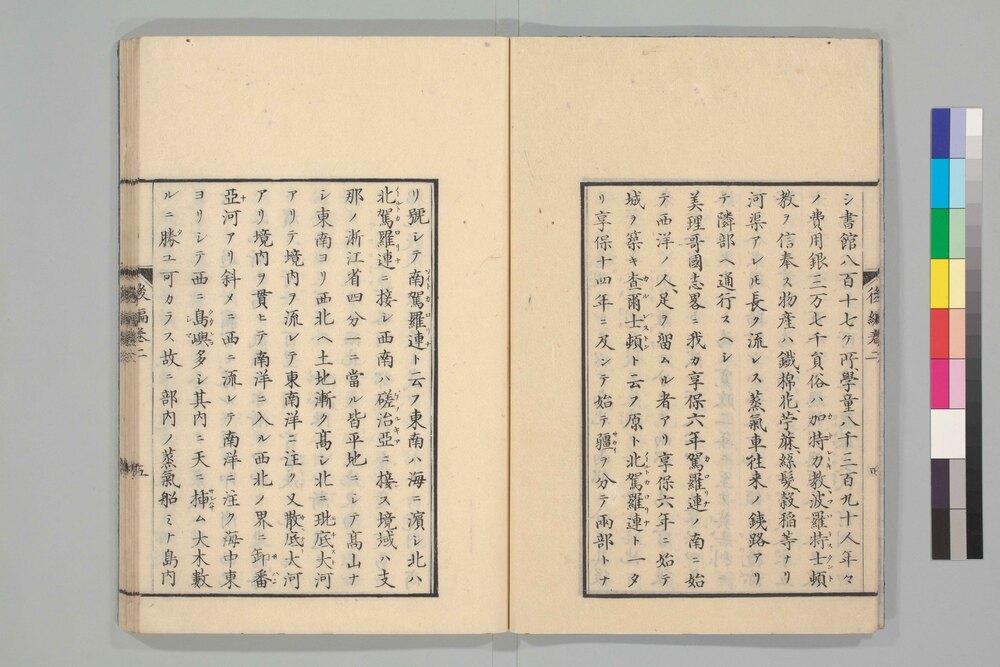 シ書館八百十七ケ所學童八千三百九十人年々
ノ費用銀三万七千員俗ハ加特力教波羅特士頓
教ヲ信奉ス物産ハ鐵棉花苧蔴絲髮穀稲等ナリ
河渠アレ𪜈長ク流レス蒸氣車往来ノ鉄路アリ
テ隣部ヘ通行スヘシ
美理哥國志畧ニ我カ享保六年駕羅連ノ南ニ始
テ西洋ノ人足ヲ留ムル者アリ享保六年ニ始テ
城ヲ築キ査爾士頓ト云フ原ト北駕羅連ト一タ
リ享保十四年ニ及ンテ始テ疆ヲ分テ兩部トナ
後編卷二
リ號シテ南駕羅連ト云フ東南ハ海ニ濱シ北ハ
北駕羅連ニ接シ西南ハ磋治亞ニ接ス境域ハ支
那ノ浙江省四分一ニ當ル皆平地ニシテ高山ナ
シ東南ヨリ西北ヘ土地漸ク高シ北ニ玭底大河
アリテ境内ヲ流レテ東南洋ニ注ク又散底大河
アリ境内ヲ貫ヒテ南洋ニ入ル西北ノ界ニ卸番
亞河アリ斜メニ西ニ流レテ南洋ニ注ク海中東
ヨリシテ西ニ島嶼多シ其内ニ天ニ挿ム大木數
ルニ勝ユ可カラス故ニ部内ノ蒸氣船ミナ島内
後編卷二
五